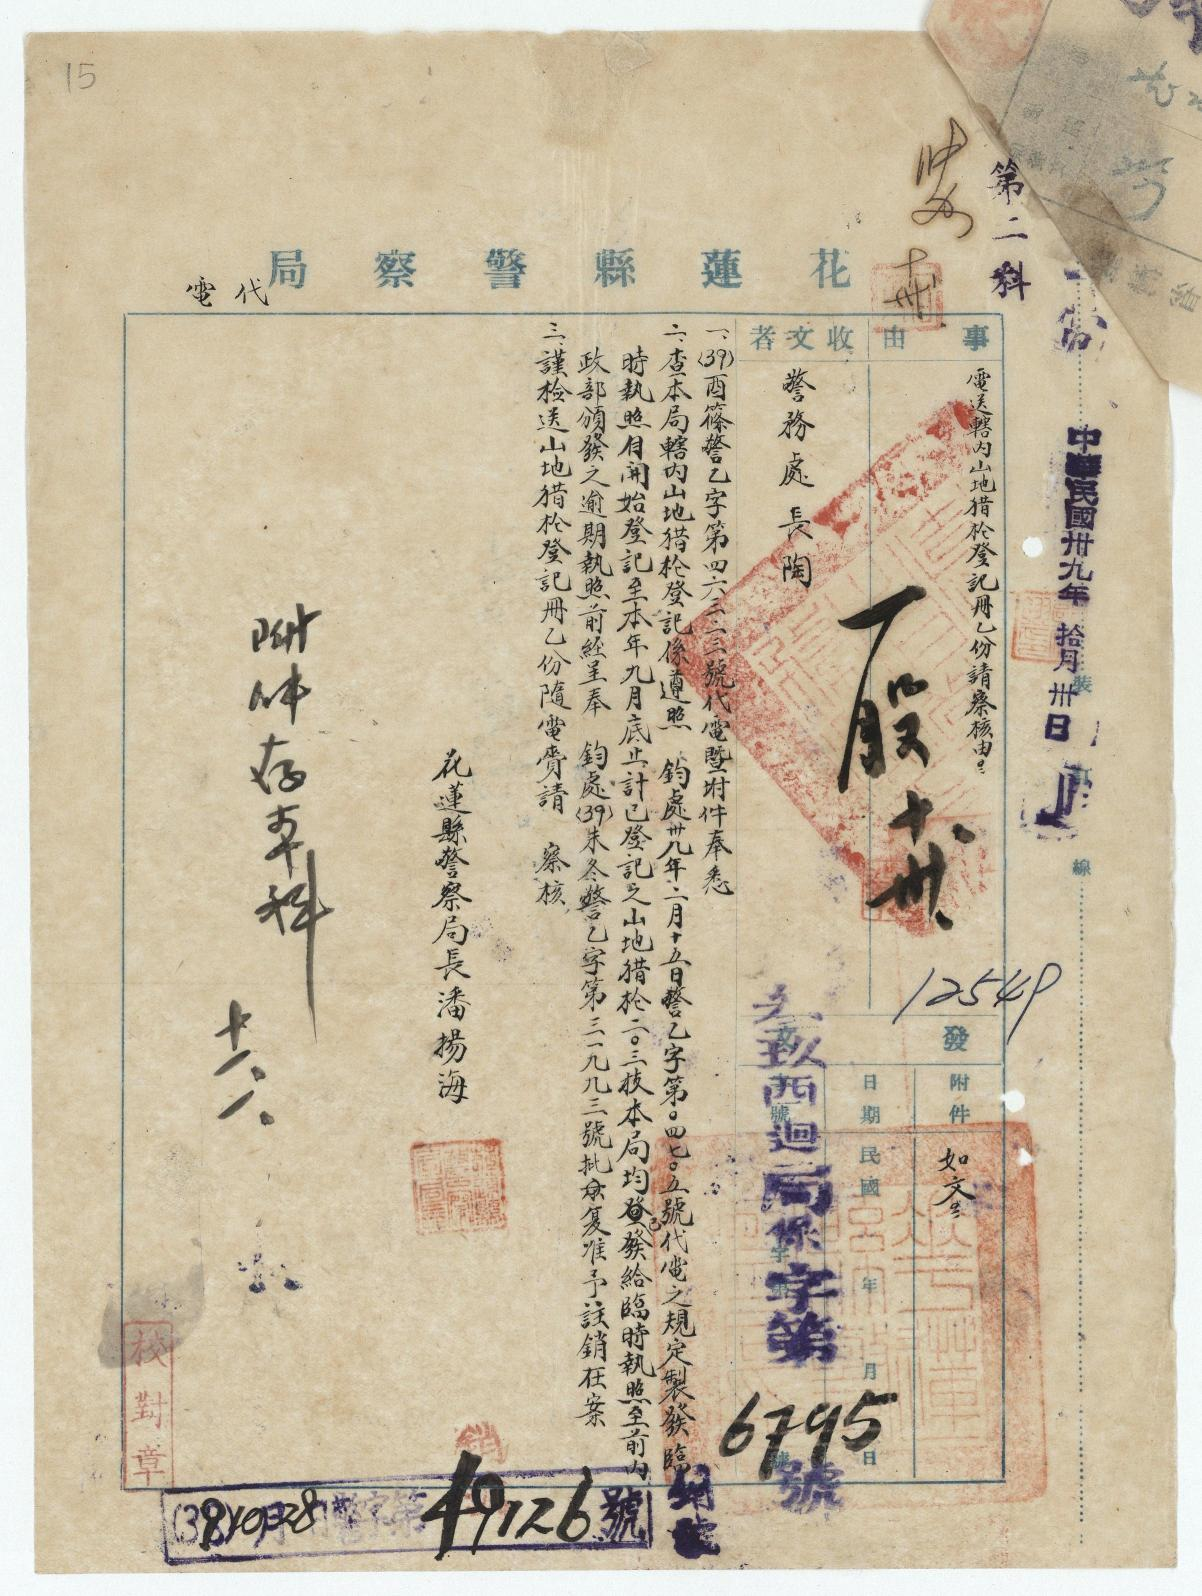 15
第二科
花蓮縣警察局
代電
中華民國卅九年拾月卅日
裝
線
事由
電送轄內山地猎枪登記冊乙份請察核由
收文者
警務處長陶
股
十、卅、
12549
發文
附件
如文
日期
民國 年 月 日
字號
字第6795號
一、(39)酉篠警乙字第四六三二三號代電暨附件奉悉
二、查本局轄內山地猎枪登記係遵照 鈞處卅八年二月十五日警乙字第〇四七〇五號代電之規定製發臨
時執照自開始登記至本年九月底止計已登記之山地猎枪二〇三枝本局均已發給臨時執照至前內
政部頒發之逾期執照前經呈奉 鈞處(39)未冬警乙字第三一九九三號批復准予註銷在案
三、謹检送山地猎枪登記冊乙份隨電賫請 察核
花蓮縣警察局長潘揚海
附件存本科
十一、一、
校對章
(39)10月28 警 字第49126號